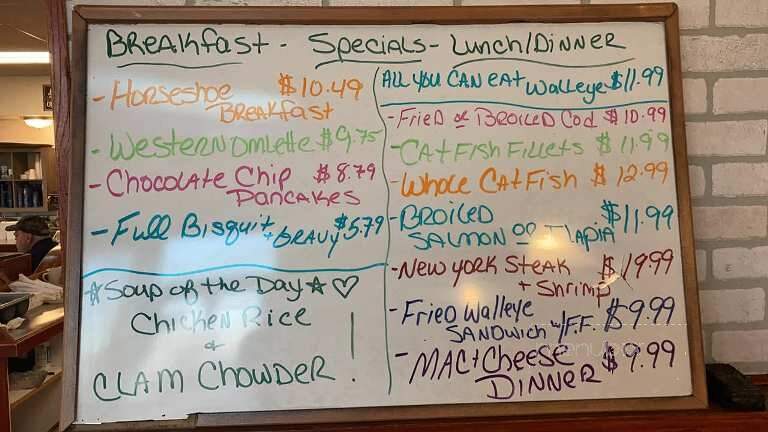 Breakfast - Specials - Lunch/Dinner
- Horseshoe $10.49
Breakfast
- Western Omlette $9.75
- Chocolate Chip $8.79
Pancakes
- Full Bisquit + Gravy $5.79
☆ Soup of the Day ☆ ♡
Chicken Rice
+
Clam Chowder !
All you can eat Walleye $11.99
- Fried or Broiled Cod $10.99
- Catfish Fillets $11.99
- Whole Catfish $12.99
- Broiled $11.99
Salmon or Tlapia
- New York Steak $19.99
+ Shrimp
- Fried Walleye $9.99
Sandwich w/F.F.
- Mac + Cheese $9.99
Dinner